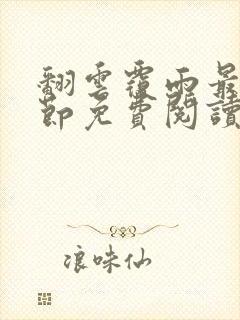 翻雲覆雨最
節免費閱讀
浪味仙